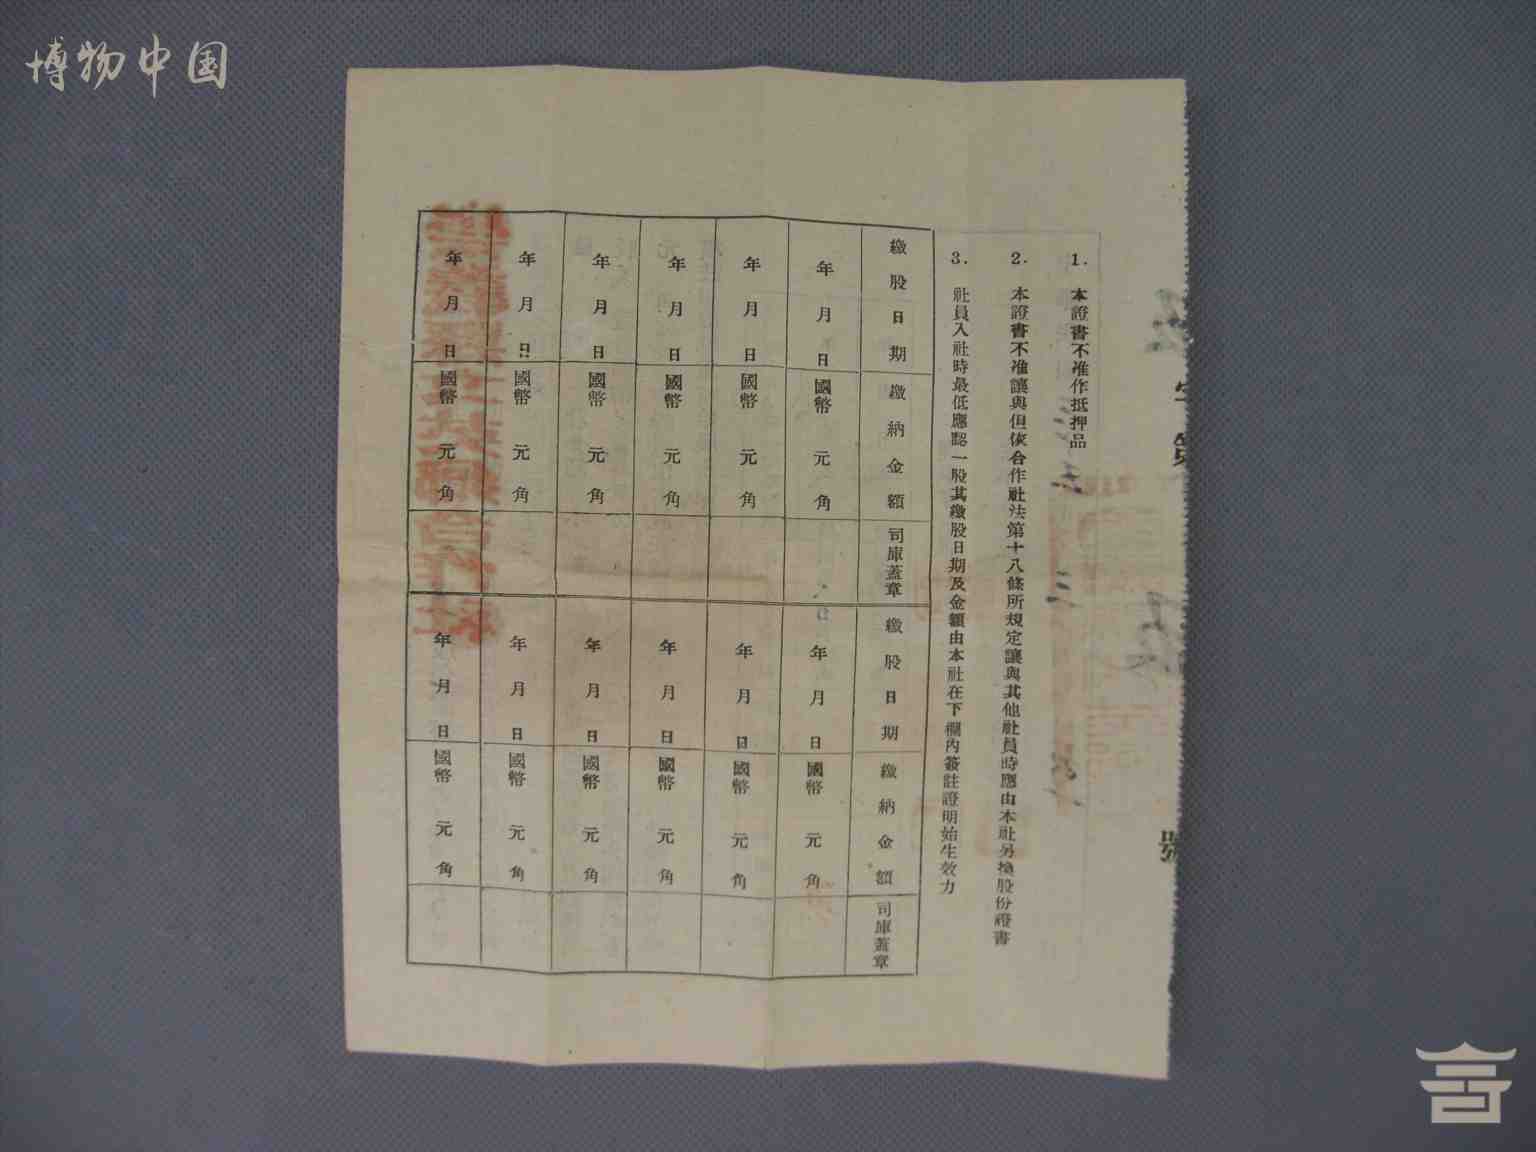 博物中国
字第
號
1. 本證書不准作抵押品
2. 本證書不准讓與但依合作社法第十八條所規定讓與其他社員時應由本社另換股份證書
3. 社員入社時最低應認一股其繳股日期及金額由本社在下欄內簽註證明始生效力
繳股日期 繳納金額 司庫蓋章 繳股日期 繳納金額 司庫蓋章
年月日 國幣 元角 年月日 國幣 元角
年月日 國幣 元角 年月日 國幣 元角
年月日 國幣 元角 年月日 國幣 元角
年月日 國幣 元角 年月日 國幣 元角
年月日 國幣 元角 年月日 國幣 元角
年月日 國幣 元角 年月日 國幣 元角